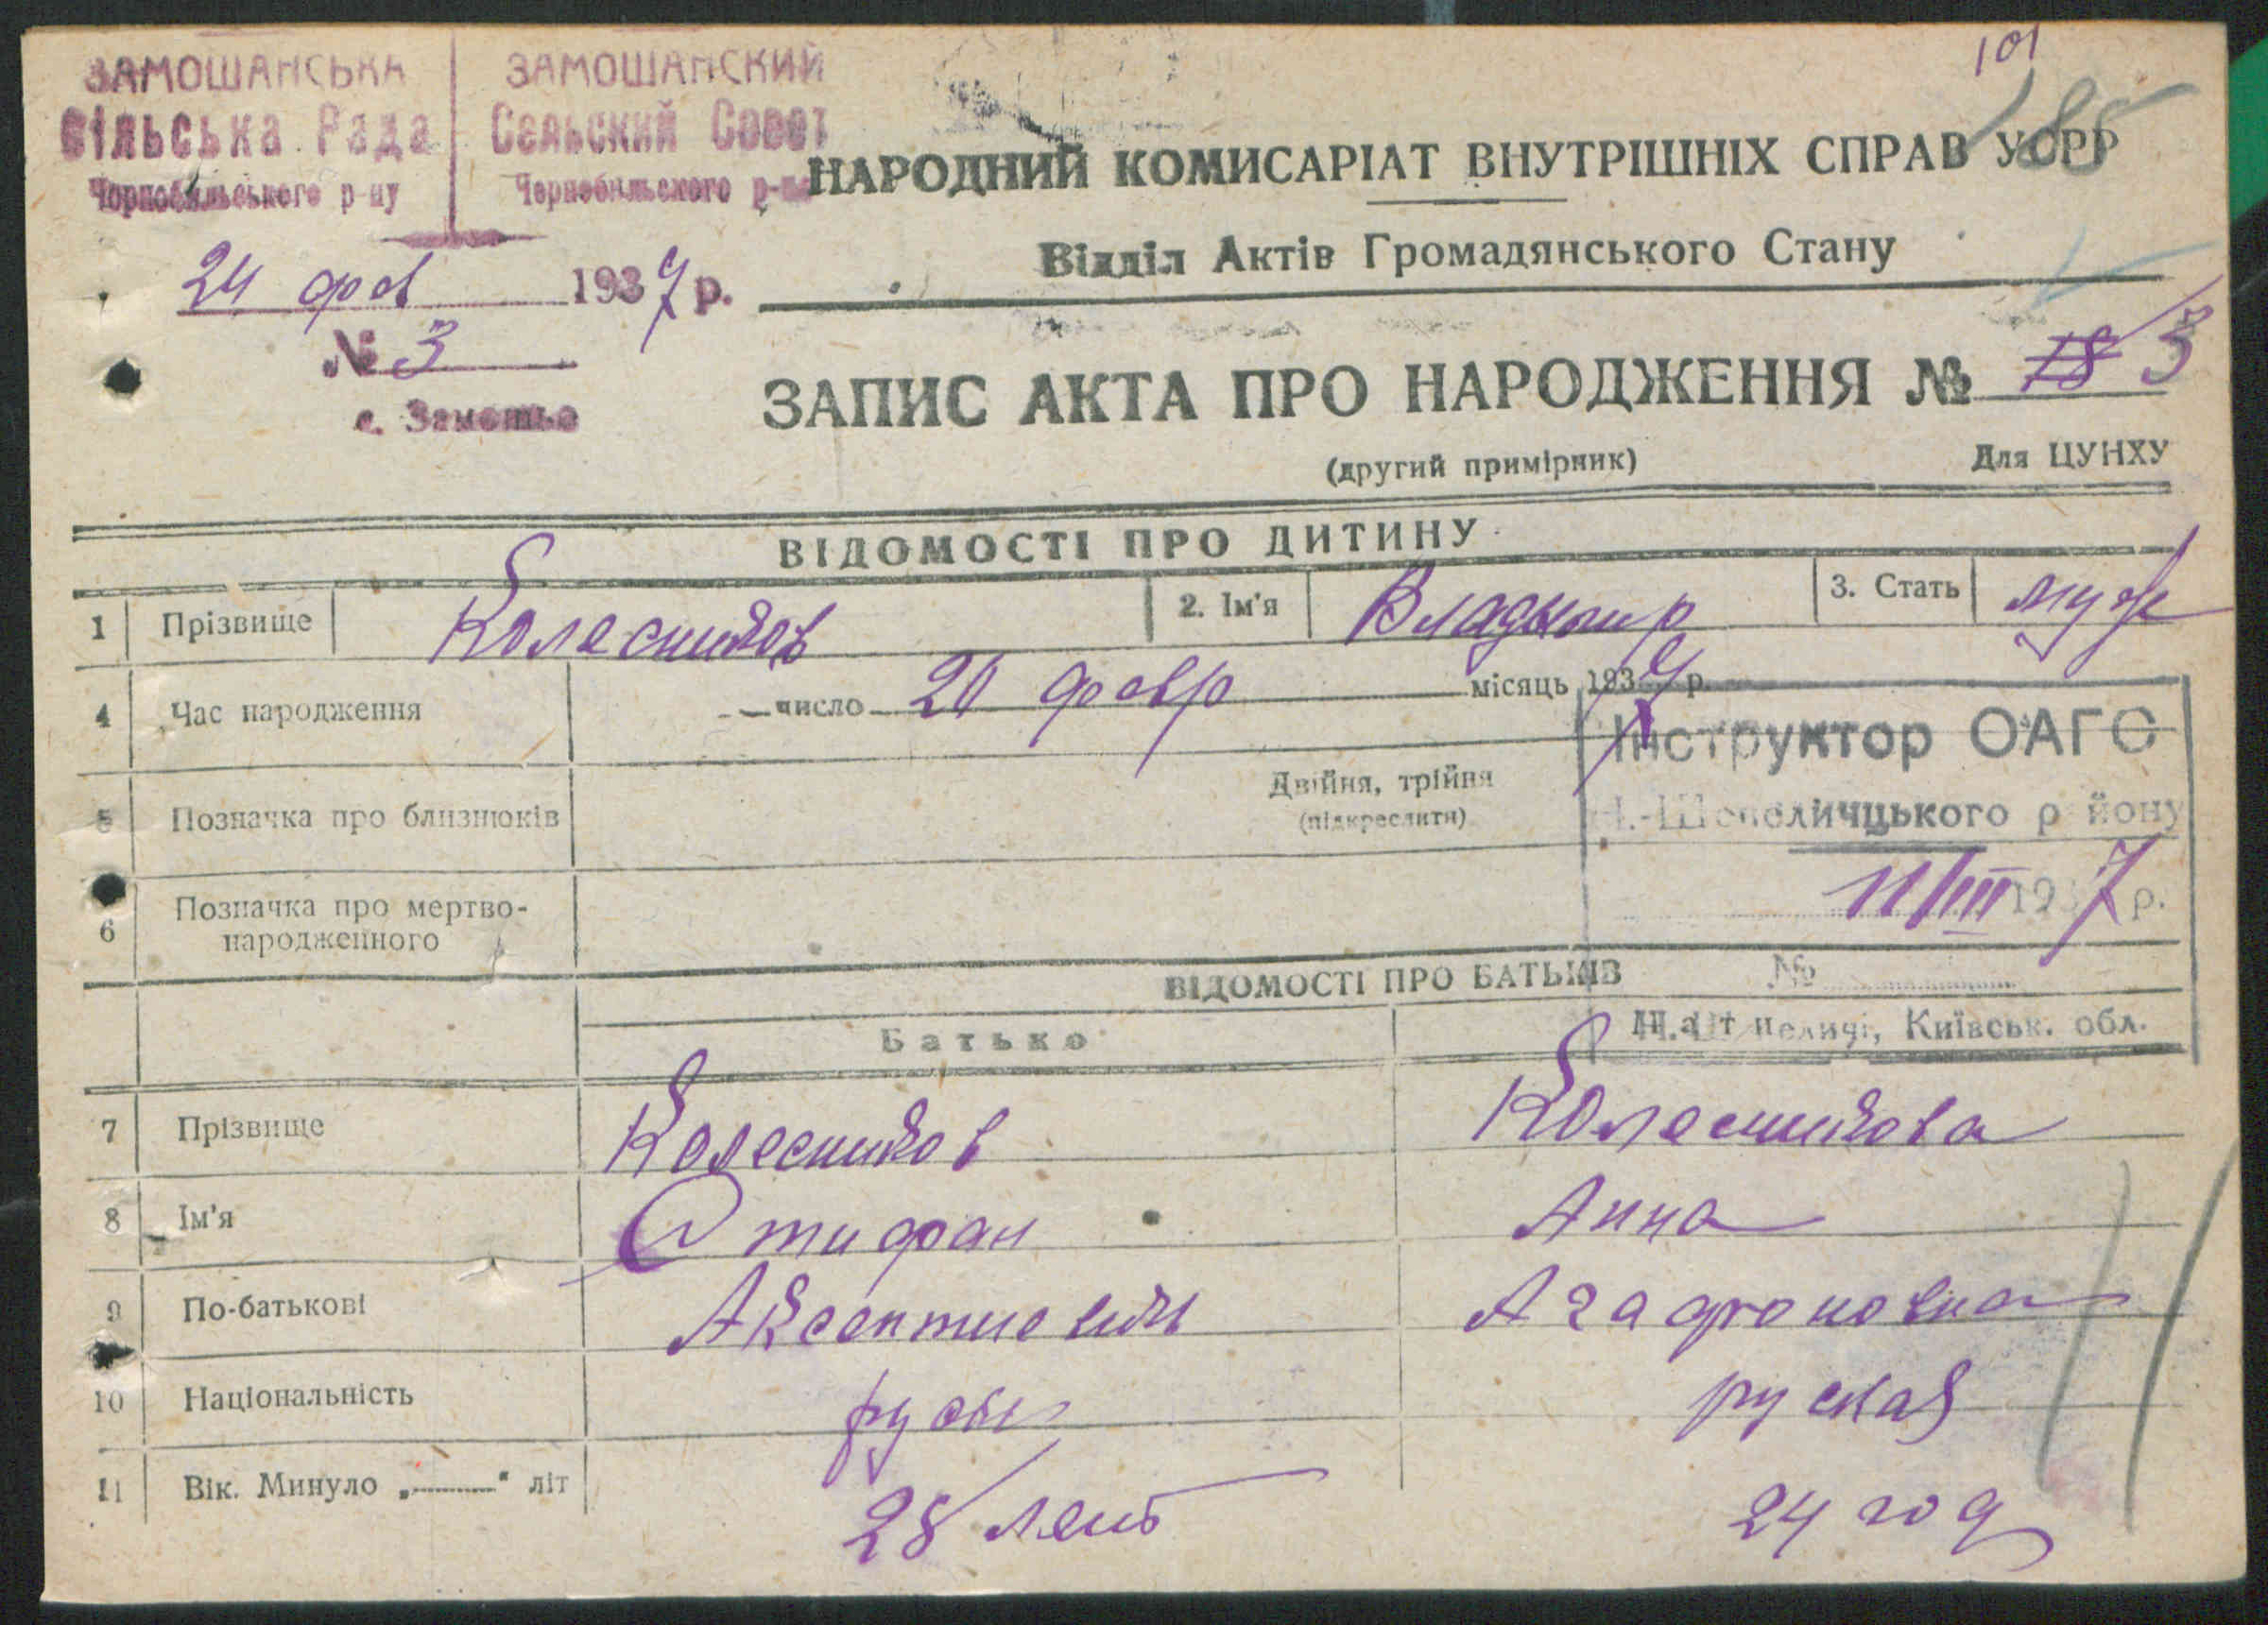 101
185
ЗАМОШАНСЬКА
Сільська Рада
Чорнобильського р-ну
ЗАМОШАНСКИЙ
Сельский Совет
Чернобыльского р-на
НАРОДНИЙ КОМИСАРІАТ ВНУТРІШНІХ СПРАВ УСРР
Відділ Актів Громадянського Стану
24 фев 1937 р.
№ 3
с. Замошьо
ЗАПИС АКТА ПРО НАРОДЖЕННЯ № 18 3
(другий примірник) Для ЦУНХУ
ВІДОМОСТІ ПРО ДИТИНУ
1 Прізвище Колесников 2. Ім'я Владимир 3. Стать муж
4 Час народження число 20 февр місяць 1937 р.
Інструктор ОАГС
Н.-Шепеличцького району
11/III 1937 р.
№
Н.-Шепеличі, Київськ. обл.
5 Позначка про близнюків Двійня, трійня
(підкреслити)
6 Позначка про мертво-
народженного
ВІДОМОСТІ ПРО БАТЬКІВ
Батько Мати
7 Прізвище Колесников Колесникова
8 Ім'я Стифан Анна
9 По-батькові Аксентиевич Агафоновна
10 Національність руская
11 Вік. Минуло „ " літ 28 лет 24 год